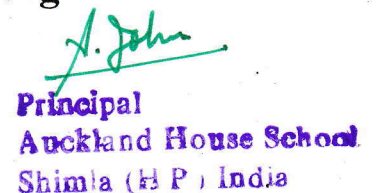 A. John
Principal
Auckland House School
Shimla (H P) India